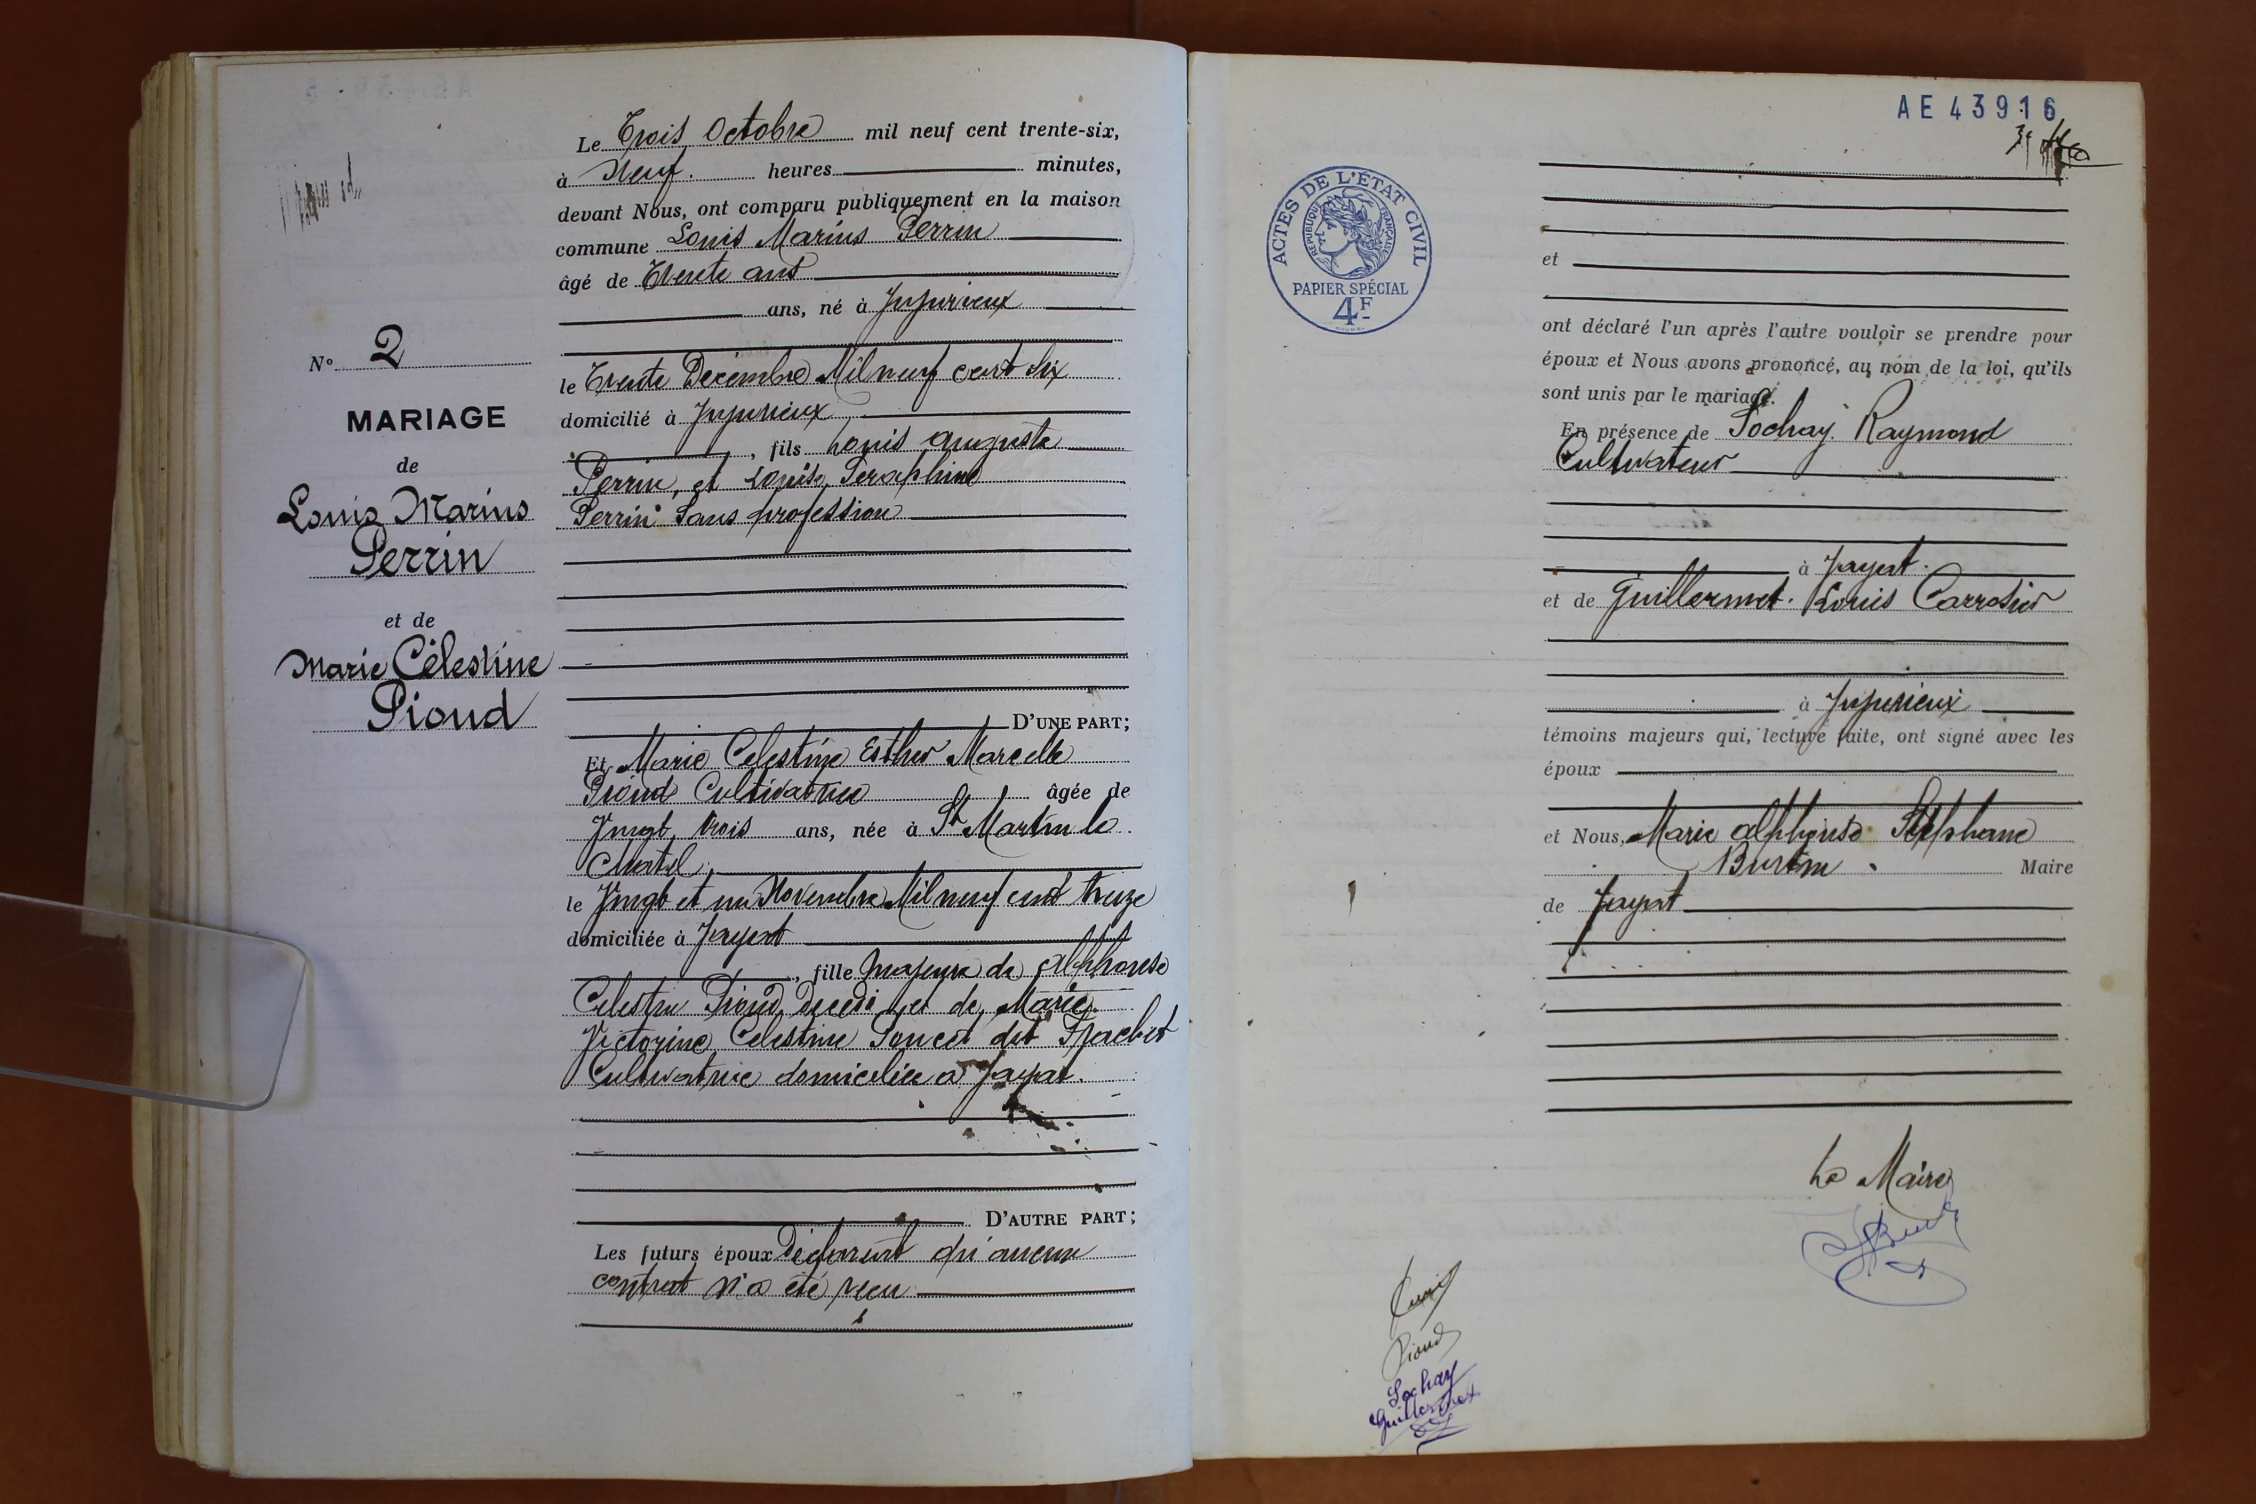 Le Trois Octobre mil neuf cent trente-six,
à Neuf. heures minutes,
devant Nous, ont comparu publiquement en la maison
commune Louis Marius Perrin
âgé de Trente ans
ans, né à Jujurieux
le Trente Décembre Mil neuf cent Six
domicilié à Jujurieux
, fils Louis Auguste
Perrin, et Louise Séraphine
Perrin Sans profession
N° 2
MARIAGE
de
Louis Marius
Perrin
et de
Marie Célestine
Pioud
D'UNE PART;
Et Marie Celestine Esther Marcelle
Pioud Cultivatrice âgée de
Vingt trois ans, née à St Martin le
Chatel
le Vingt et un Novembre Mil neuf cent treize
domiciliée à Jayat
, fille majeure de Alphonse
Celestin Pioud décédé et de Marie
Victorine Celestine Poncet dit
Cultivatrice domiciliée a Jayat.
D'AUTRE PART;
Les futurs époux Déclarent qu'aucun
contrat n'a été reçu
AE 43916
ACTES DE L'ÉTAT CIVIL
RÉPUBLIQUE FRANÇAISE
PAPIER SPÉCIAL
4F
et
ont déclaré l'un après l'autre vouloir se prendre pour
époux et Nous avons prononcé, au nom de la loi, qu'ils
sont unis par le mariage.
En présence de Sochay Raymond
Cultivateur
à Jayat.
et de Guillermet. Louis Carrossier
à Jujurieux
témoins majeurs qui, lecture faite, ont signé avec les
époux
et Nous, Marie Alphonse Stéphane
Burtin Maire
de Jayat
Le Maire
Pioud
Sochay
Guillermet